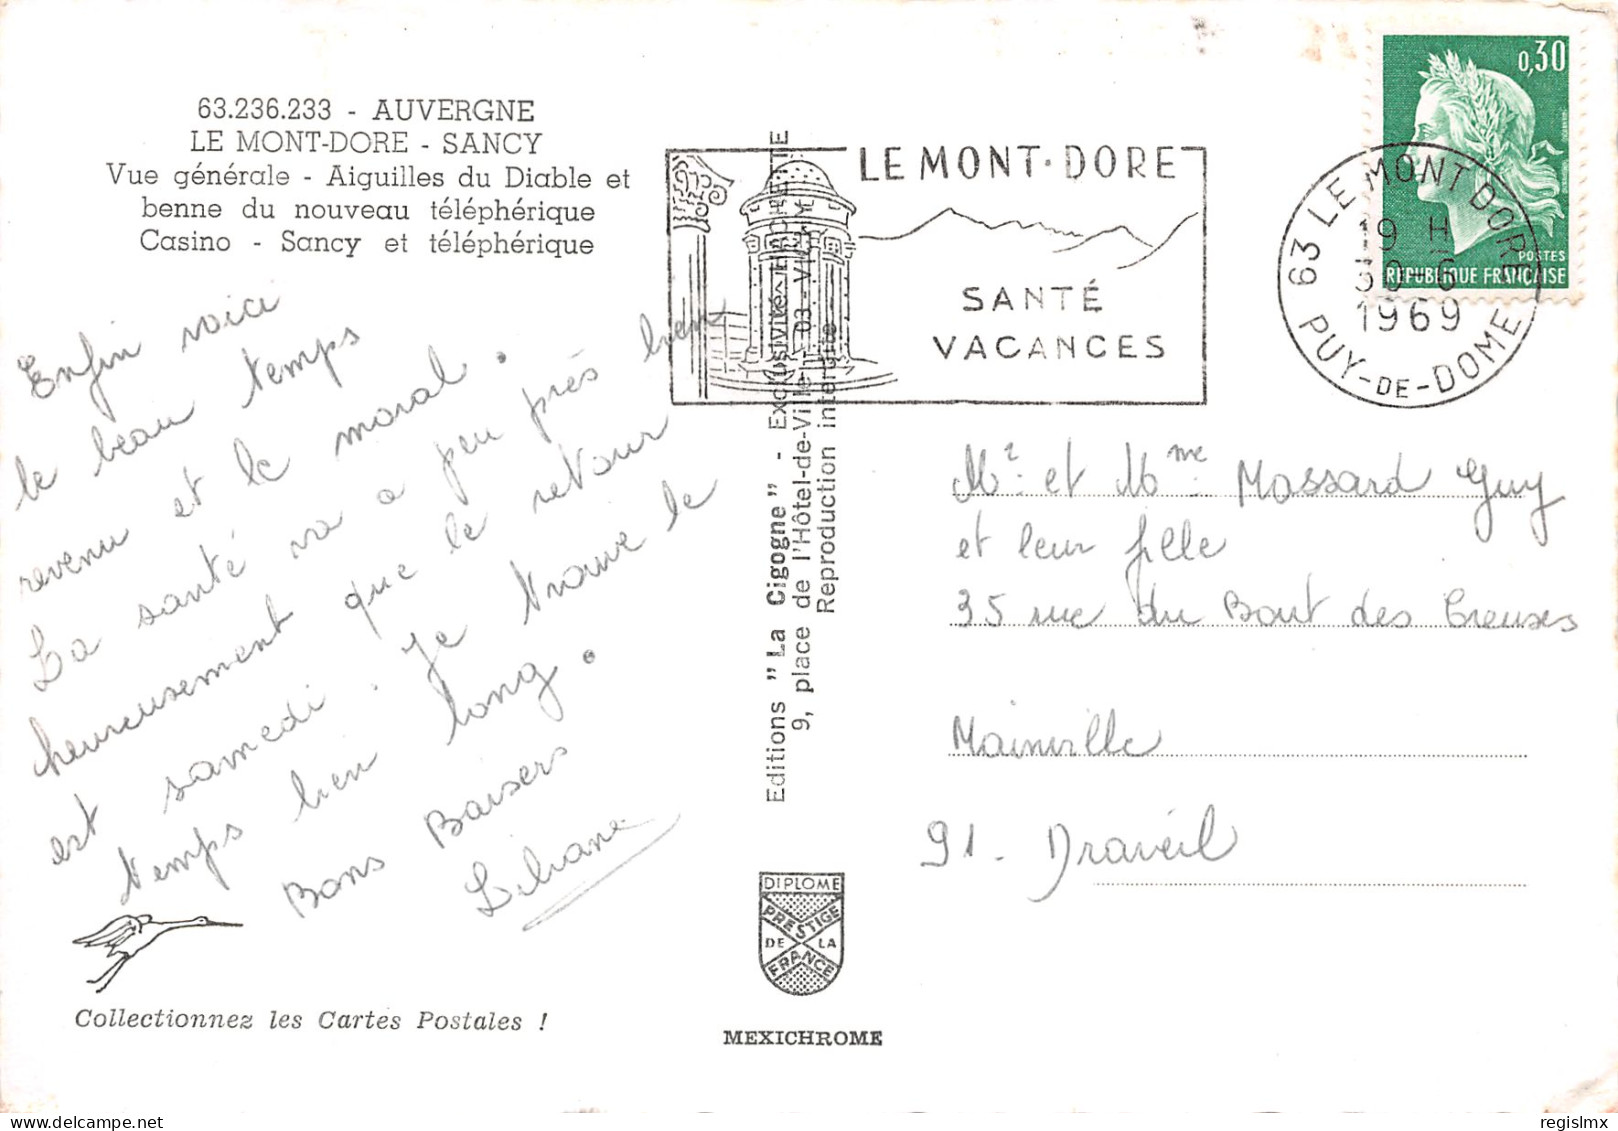 63.236.233 - AUVERGNE
LE MONT-DORE - SANCY
Vue générale - Aiguilles du Diable et
benne du nouveau téléphérique
Casino - Sancy et téléphérique
Enfin voici
le beau temps
revenu et le moral.
La santé va a peu près bien
heureusement que le retour
est samedi. Je trouve le
temps bien long.
Bons Baisers
Liliane
Collectionnez les Cartes Postales !
Editions "La Cigogne" - Exclusivité
9, place de l'Hôtel-de-Ville - 03 - VICHY
Reproduction interdite
DIPLOME
PRESTIGE
DE LA
FRANCE
MEXICHROME
LE MONT-DORE
SANTÉ
VACANCES
63 LE MONT DORE
19 H
30-6
1969
PUY-DE-DOME
0,30
POSTES
REPUBLIQUE FRANÇAISE
Mr. et Mme. Massard Guy
et leur fille
35 rue du Bout des Creuses
Mainville
91. Draveil
delcampe.net
regislmx